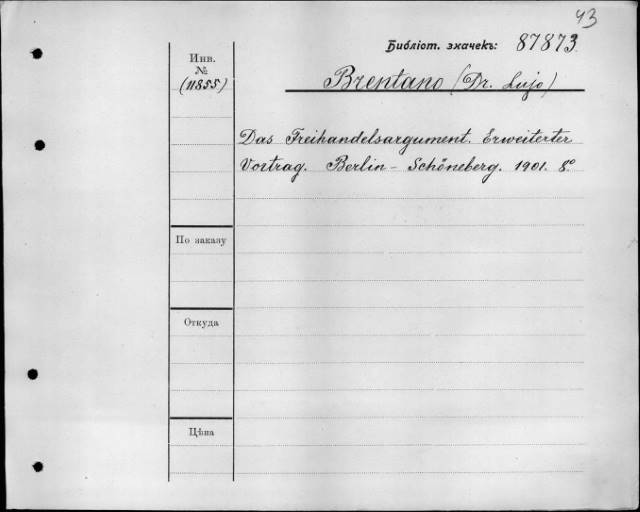 43
Библіот. значекъ: 87873
Инв.
№
(11855)
Brentano (Dr. Lujo)
Das Freihandelsargument. Erweiterter
Vortrag. Berlin - Schöneberg. 1901. 8°
По заказу
Откуда
Цѣна